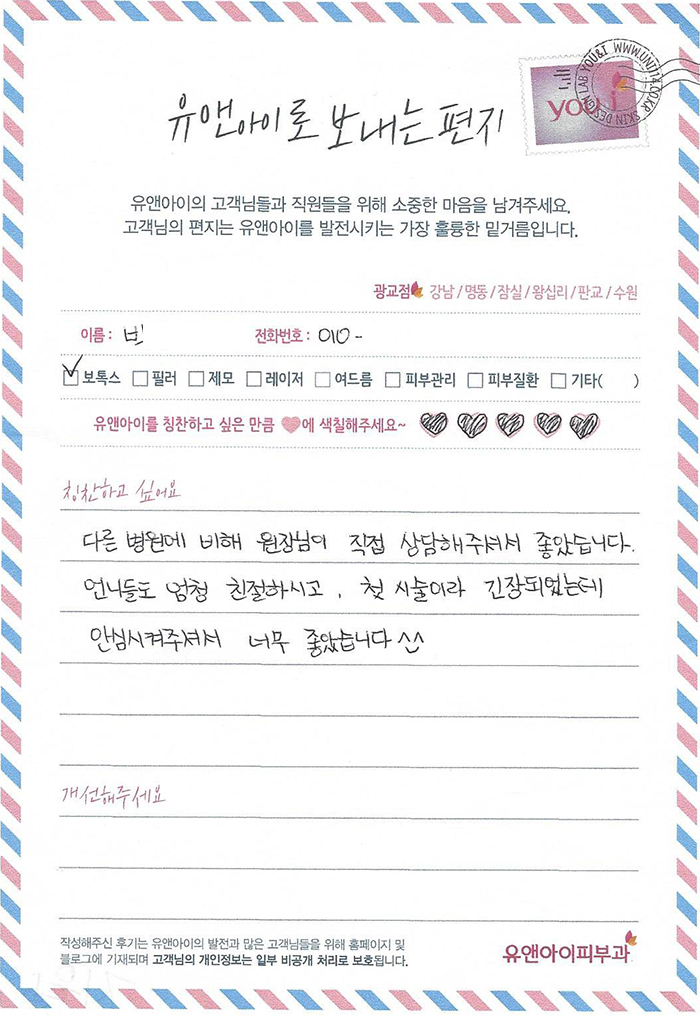 유앤아이로 보내는 편지
you&i
SKIN DESIGN LAB YOU&I WWW.UNI114.CO.KR
유앤아이의 고객님들과 직원들을 위해 소중한 마음을 남겨주세요.
고객님의 편지는 유앤아이를 발전시키는 가장 훌륭한 밑거름입니다.
광교점 강남 / 명동 / 잠실 / 왕십리 / 판교 / 수원
이름 : 빈 전화번호 : 010 -
보톡스 필러 제모 레이저 여드름 피부관리 피부질환 기타( )
유앤아이를 칭찬하고 싶은 만큼 에 색칠해주세요~
칭찬하고 싶어요
다른 병원에 비해 원장님이 직접 상담해주셔서 좋았습니다.
언니들도 엄청 친절하시고, 첫 시술이라 긴장되었는데
안심시켜주셔서 너무 좋았습니다 ^^
개선해주세요
작성해주신 후기는 유앤아이의 발전과 많은 고객님들을 위해 홈페이지 및
블로그에 기재되며 고객님의 개인정보는 일부 비공개 처리로 보호됩니다.
유앤아이피부과